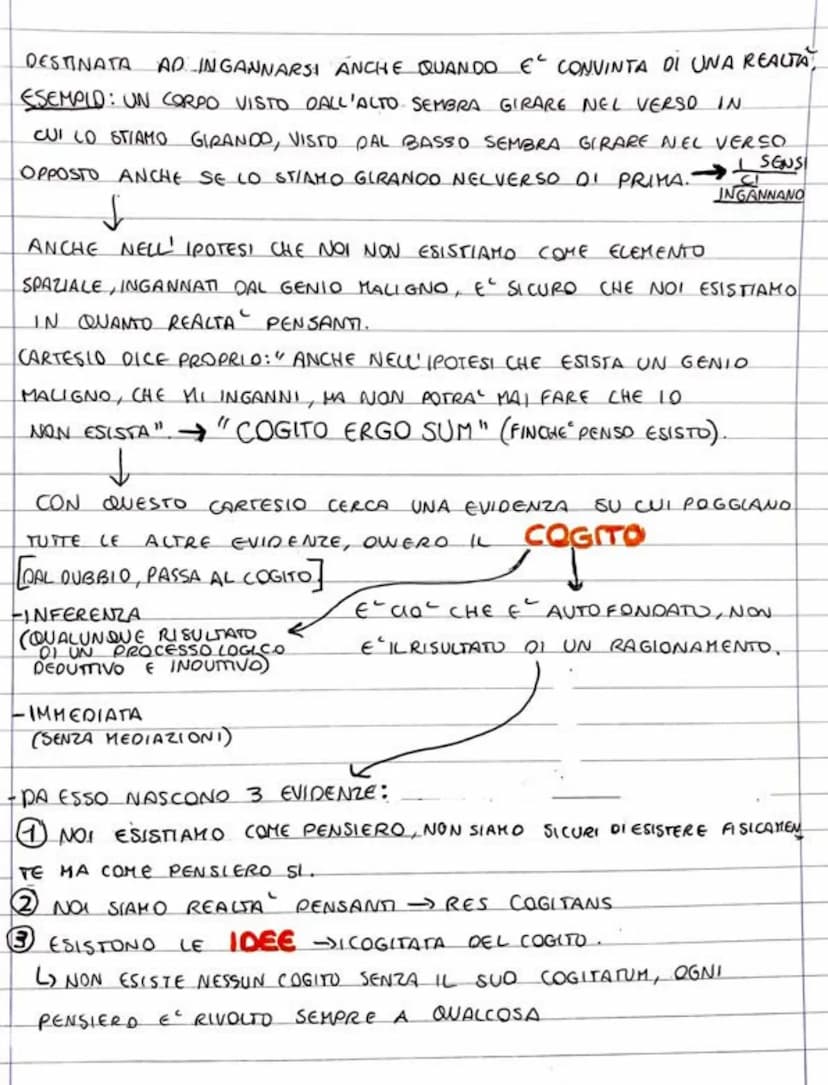 DESTINATA AD INGANNARSI ANCHE QUANDO E' CONVINTA DI UNA REALTA'.
ESEMPIO: UN CORPO VISTO DALL'ALTO SEMBRA GIRARE NEL VERSO IN
CUI LO STIAMO GIRANDO, VISTO DAL BASSO SEMBRA GIRARE NEL VERSO
OPPOSTO ANCHE SE LO STIAMO GIRANDO NEL VERSO DI PRIMA. → I SENSI
CI
INGANNANO
↓
ANCHE NELL' IPOTESI CHE NOI NON ESISTIAMO COME ELEMENTO
SPAZIALE, INGANNATI DAL GENIO MALIGNO, E' SICURO CHE NOI ESISTIAMO
IN QUANTO REALTA' PENSANTI.
CARTESIO DICE PROPRIO: "ANCHE NELL'IPOTESI CHE ESISTA UN GENIO
MALIGNO, CHE MI INGANNI, MA NON POTRA' MAI FARE CHE IO
NON ESISTA". → "COGITO ERGO SUM" (FINCHE' PENSO ESISTO).
↓
CON QUESTO CARTESIO CERCA UNA EVIDENZA SU CUI POGGIANO
TUTTE LE ALTRE EVIDENZE, OVVERO IL COGITO
[DAL DUBBIO, PASSA AL COGITO]
-INFERENZA
(QUALUNQUE RISULTATO
DI UN PROCESSO LOGICO
DEDUTTIVO E INDUTTIVO)
E' CIO' CHE E' AUTOFONDATO, NON
E' IL RISULTATO DI UN RAGIONAMENTO.
-IMMEDIATA
(SENZA MEDIAZIONI)
-DA ESSO NASCONO 3 EVIDENZE:
① NOI ESISTIAMO COME PENSIERO, NON SIAMO SICURI DI ESISTERE FISICAMEN
TE MA COME PENSIERO SI.
② NOI SIAMO REALTA' PENSANTI → RES COGITANS
③ ESISTONO LE IDEE → I COGITATA DEL COGITO.
↳ NON ESISTE NESSUN COGITO SENZA IL SUO COGITATUM, OGNI
PENSIERO E' RIVOLTO SEMPRE A QUALCOSA